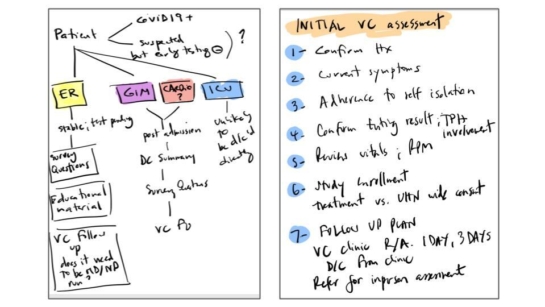 Patient
COVID19+
suspected
but early testing ⊖
?
ER
GIM
CARDIO
?
ICU
stable; test pending
Survey
Questions
Educational
material
VC Follow
up
does it need
to be MD/NP
run?
post admission
DC Summary
Survey
VC
unlikely
to
be d/c'd
directly
INITIAL VC assessment
1- Confirm Hx
2- Current symptoms
3- Adherence to self isolation
4- Confirm testing result; TPH
involvement
5- Review vitals; RPM
6- Study enrollment
treatment vs. UHN wide consent
7- FOLLOW UP PLAN
VC clinic R/A. 1 DAY, 3 DAYS
D/C from clinic
Refer for inperson assessment